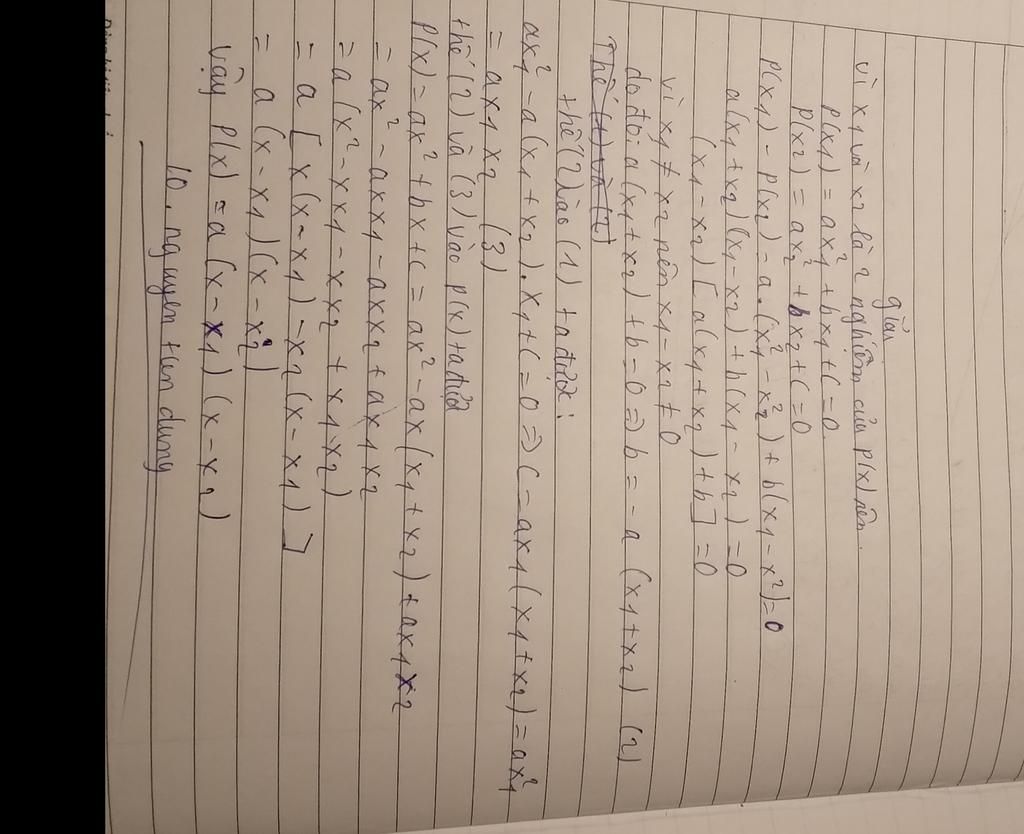 giải
vì x1 và x2 là 2 nghiệm của p(x) nên.
p(x1) = ax1² + bx1 + c = 0
p(x2) = ax2² + bx2 + c = 0
p(x1) - p(x2) = a.(x1² - x2²) + b(x1 - x²) = 0
a(x1 + x2)(x1 - x2) + b(x1 - x2) = 0
(x1 - x2) [a(x1 + x2) + b] = 0
vì x1 ≠ x2 nên x1 - x2 ≠ 0
do đói a(x1 + x2) + b = 0 => b = -a (x1 + x2) (2)
Thế (1) và (2)
thế (2) vào (1) ta được:
ax1² - a(x1 + x2).x1 + c = 0 => c = ax1(x1 + x2) = ax1²
= ax1x2 (3)
thế (2) và (3) vào p(x) ta được
p(x) = ax² + bx + c = ax² - ax(x1 + x2) + ax1x2
= ax² - axx1 - axx2 + ax1x2
= a(x² - xx1 - xx2 + x1x2)
= a [x(x - x1) - x2(x - x1)]
= a(x - x1)(x - x2)
vậy p(x) = a(x - x1)(x - x2)
10. nguyen tien dung